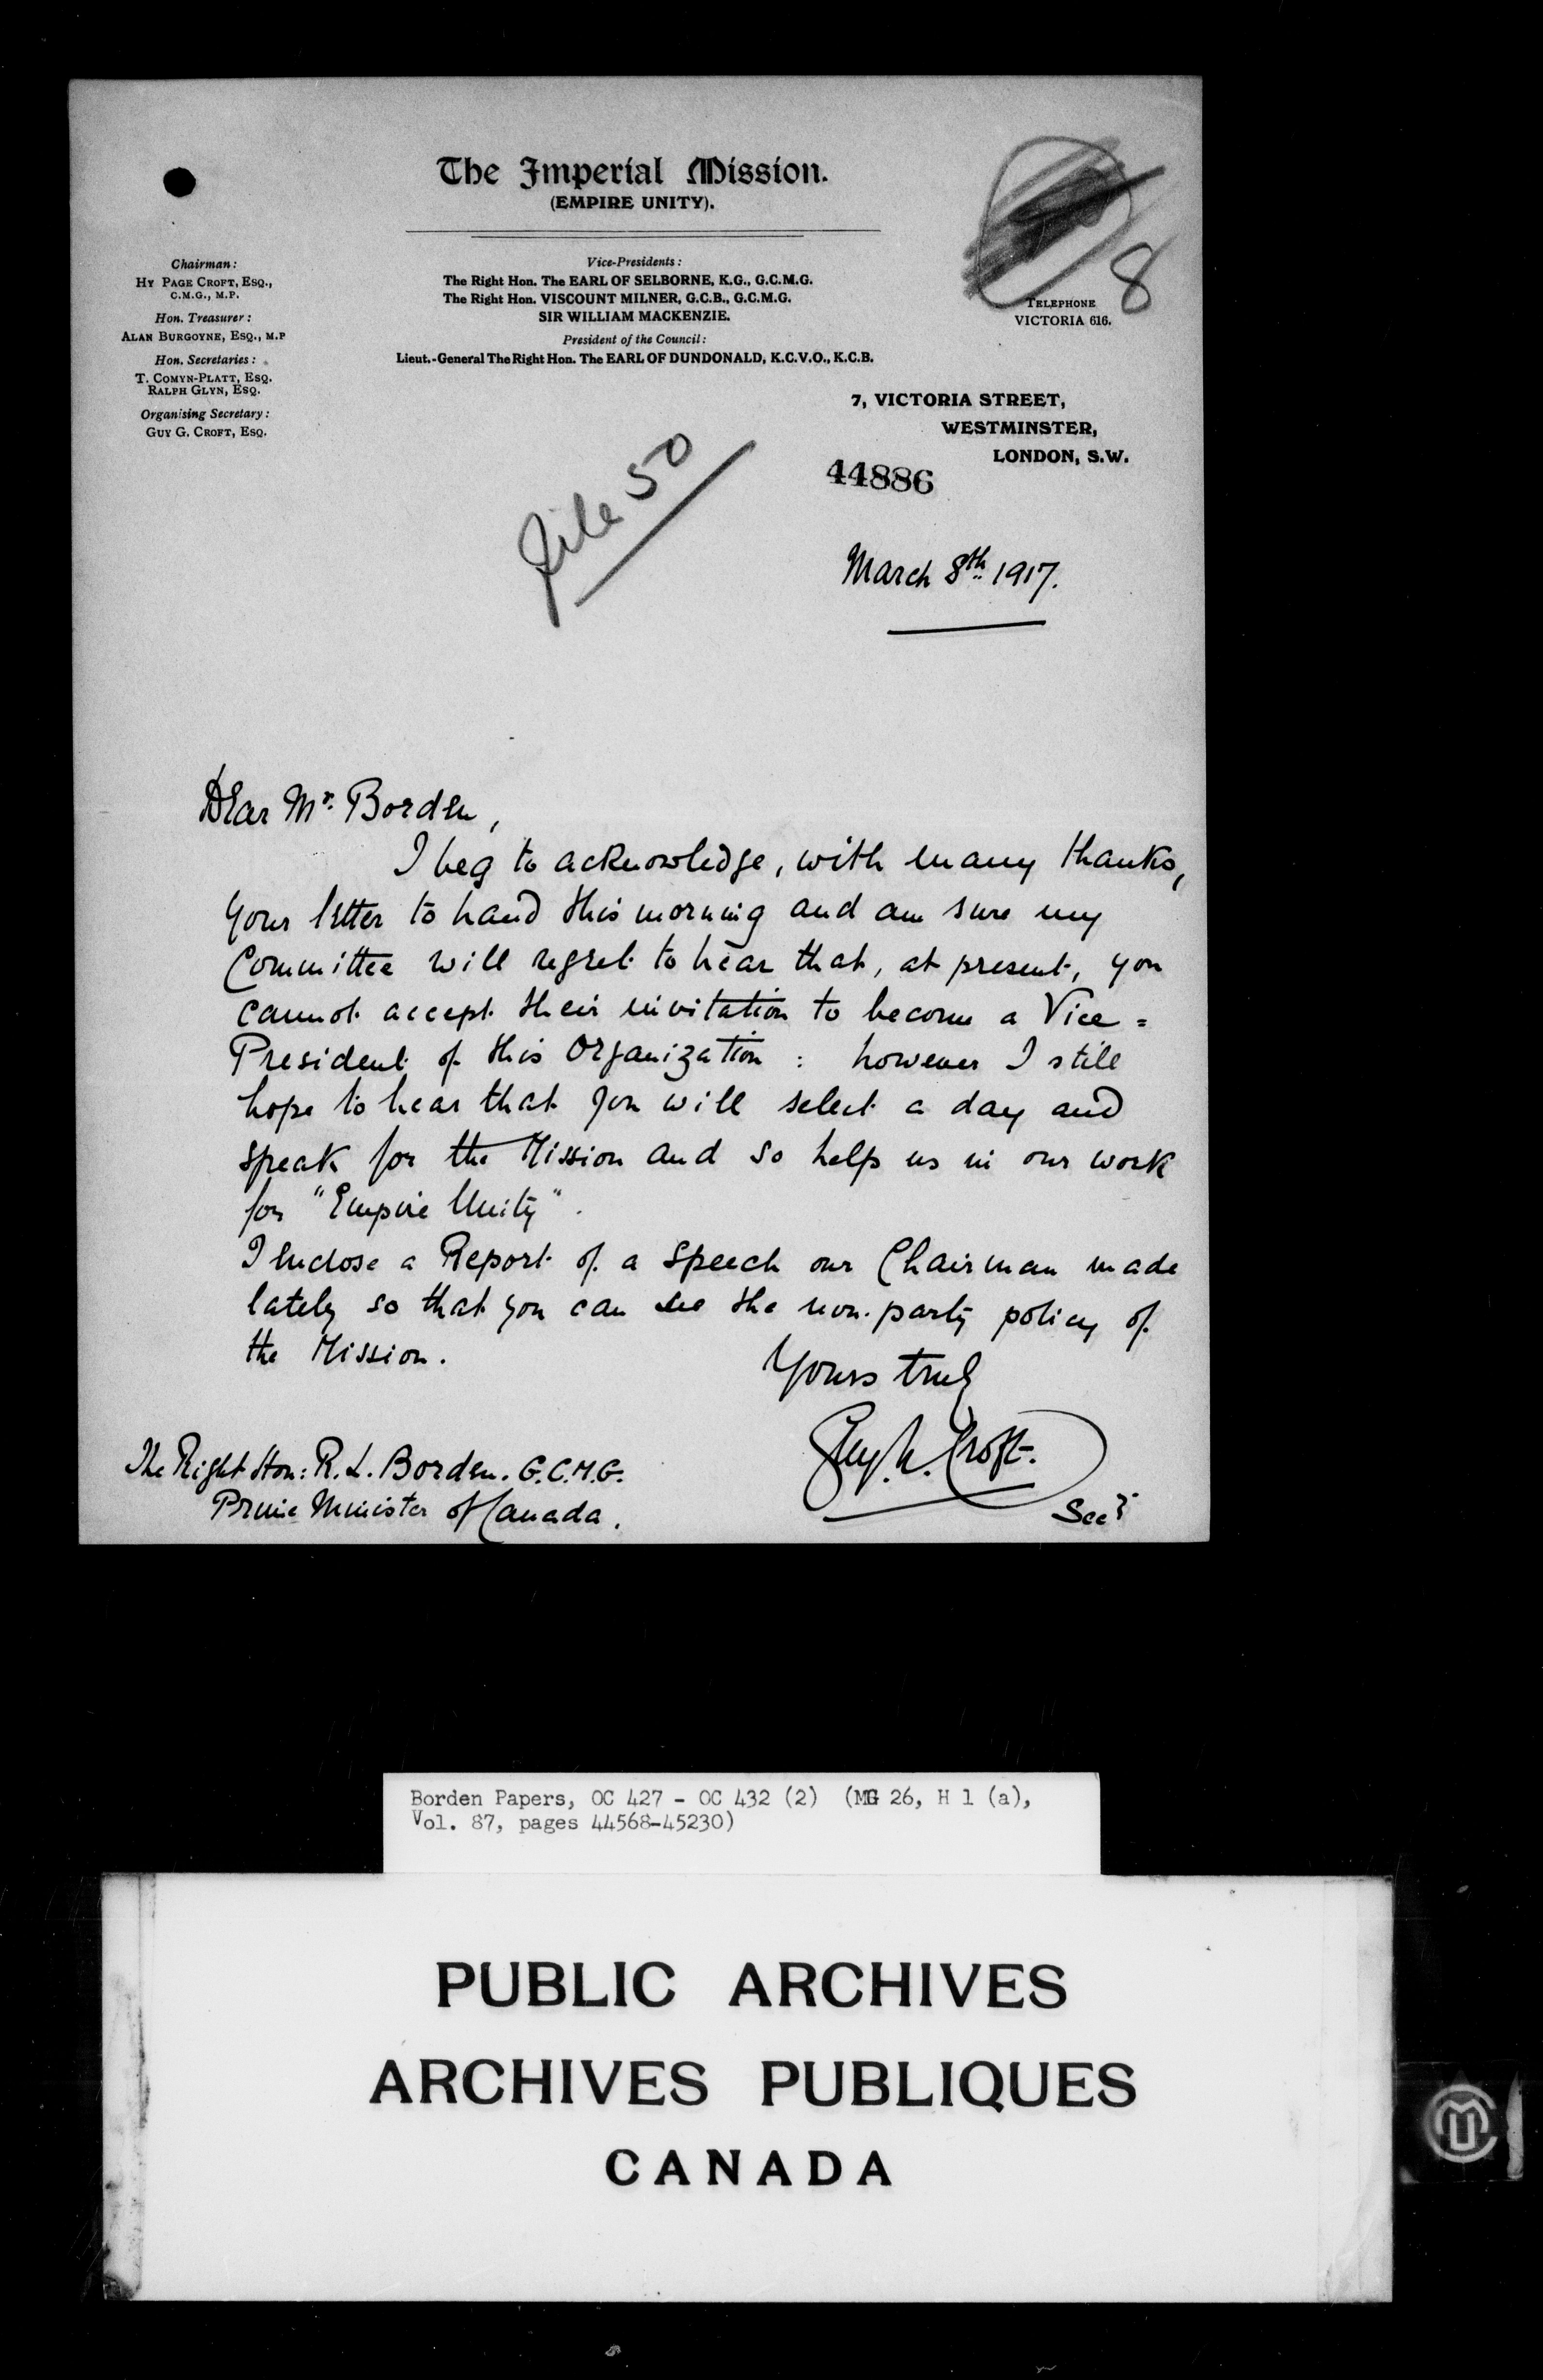 The Imperial Mission.
(EMPIRE UNITY).
8
Chairman:
HY PAGE CROFT, ESQ.,
C.M.G., M.P.
Hon. Treasurer:
ALAN BURGOYNE, ESQ., M.P
Hon. Secretaries:
T. COMYN-PLATT, ESQ.
RALPH GLYN, ESQ.
Organising Secretary:
GUY G. CROFT, ESQ.
Vice-Presidents:
The Right Hon. The EARL OF SELBORNE, K.G., G.C.M.G.
The Right Hon. VISCOUNT MILNER, G.C.B., G.C.M.G.
SIR WILLIAM MACKENZIE.
President of the Council:
Lieut.-General The Right Hon. The EARL OF DUNDONALD, K.C.V.O., K.C.B.
TELEPHONE
VICTORIA 616.
7, VICTORIA STREET,
WESTMINSTER,
LONDON, S.W.
44886
file 50
March 8th 1917.
Dear Mr. Borden,
I beg to acknowledge, with many thanks,
your letter to hand this morning and am sure my
Committee will regret to hear that, at present, you
cannot accept their invitation to become a Vice=
President of this Organization : however I still
hope to hear that you will select a day and
speak for the Mission and so help us in our work
for "Empire Unity".
I enclose a Report of a speech our Chairman made
lately so that you can see the non-party policy of
the Mission.
Yours truly
Guy G. Croft.
Secy
The Right Hon: R. L. Borden. G.C.M.G.
Prime Minister of Canada.
Borden Papers, OC 427 - OC 432 (2) (MG 26, H 1 (a),
Vol. 87, pages 44568-45230)
PUBLIC ARCHIVES
ARCHIVES PUBLIQUES
CANADA